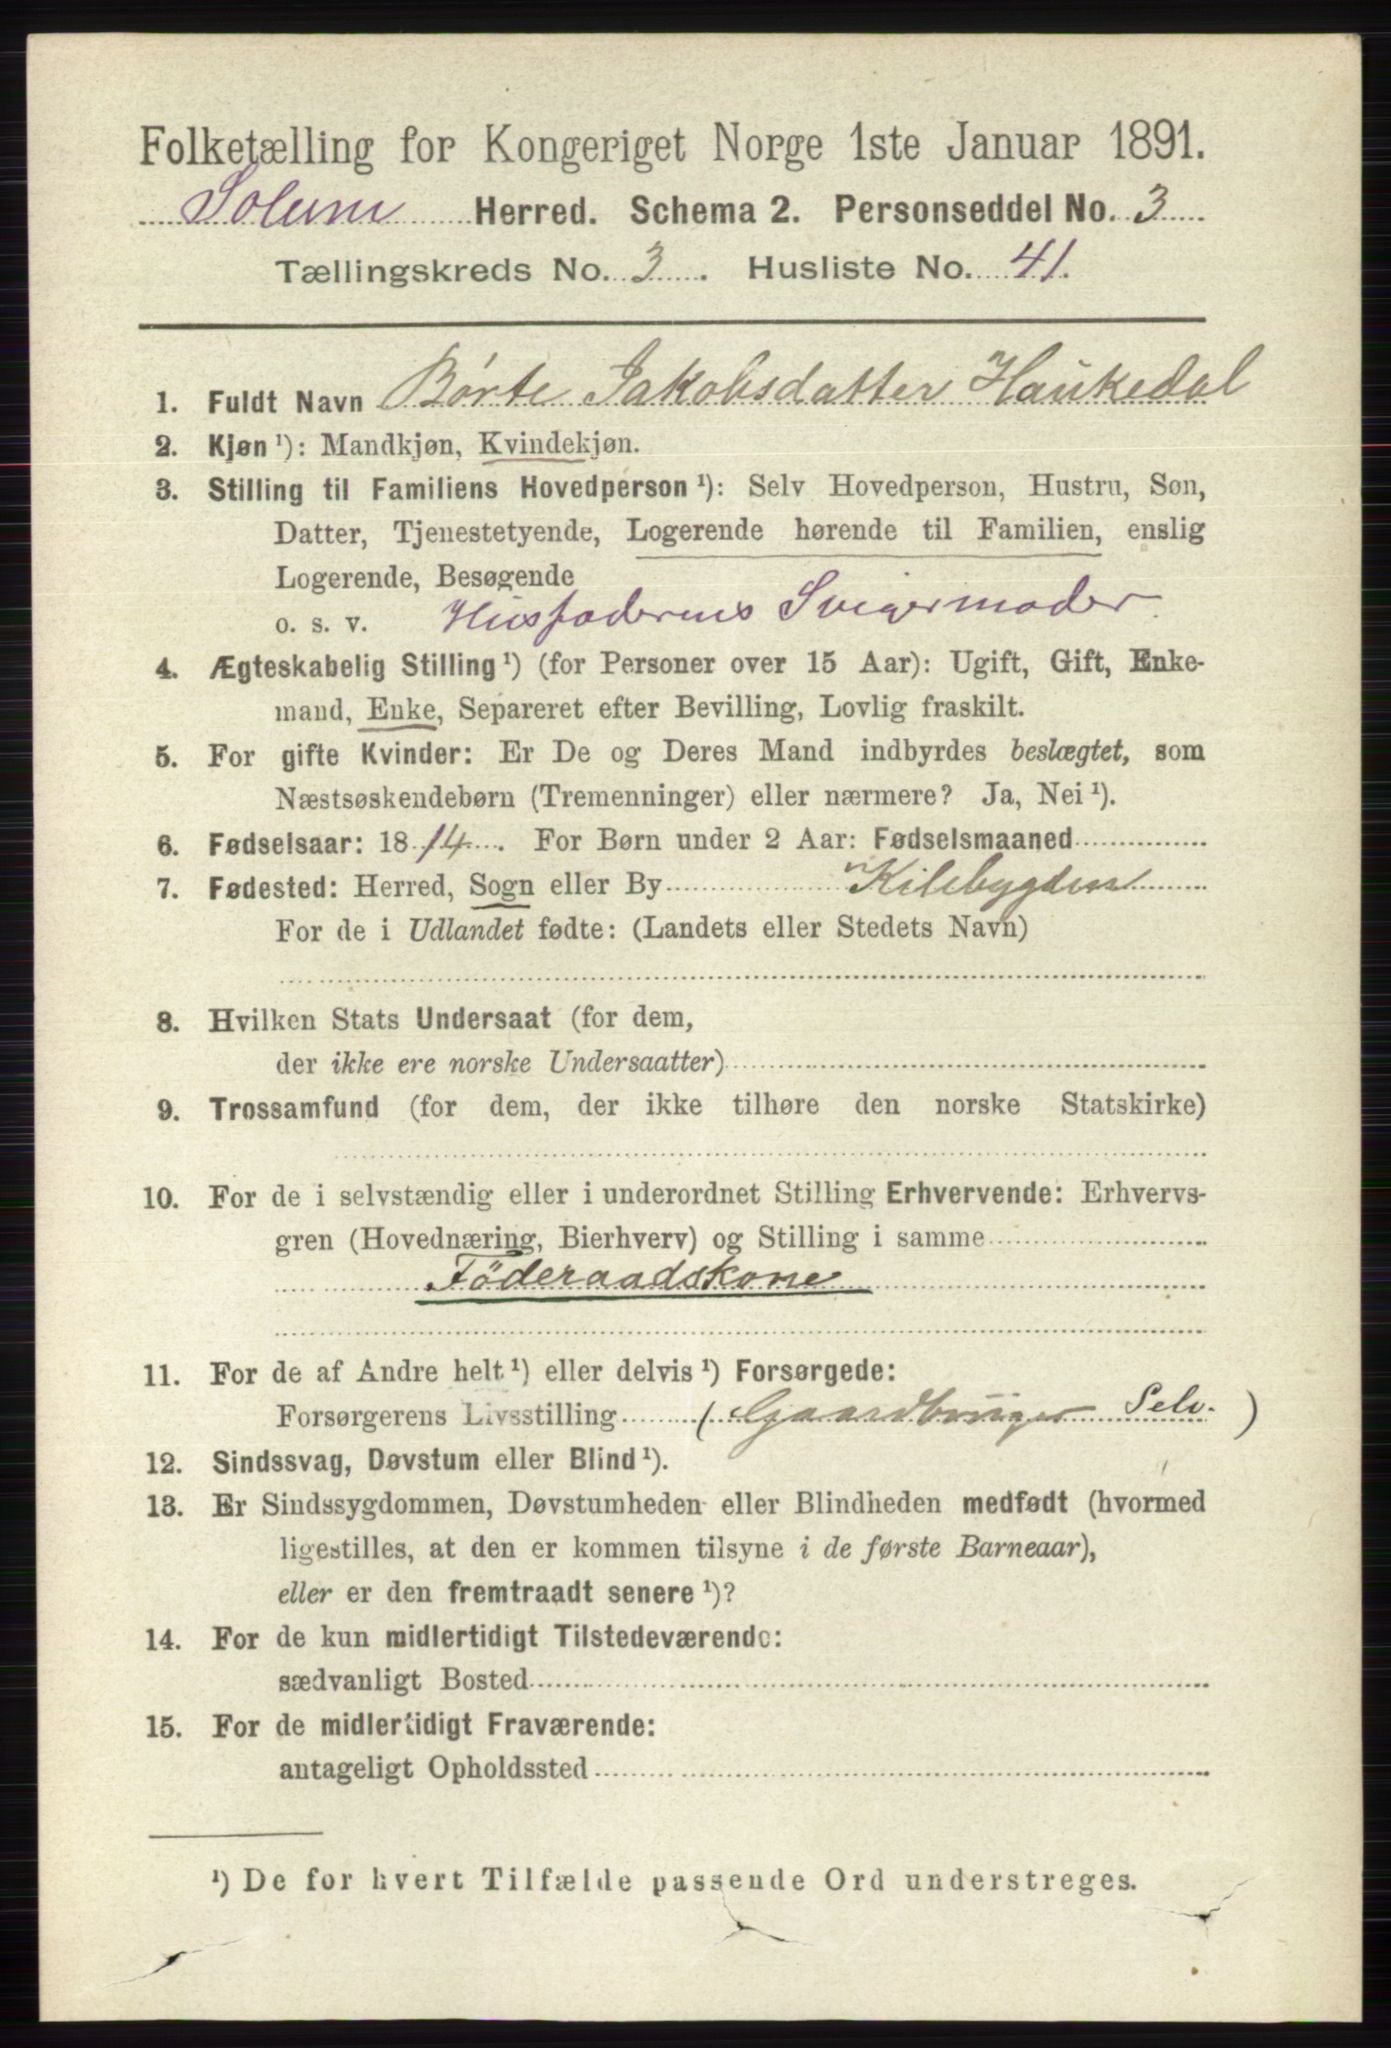 Folketælling for Kongeriget Norge 1ste Januar 1891.
Solum Herred. Schema 2. Personseddel No. 3
Tællingskreds No. 3. Husliste No. 41.
1. Fuldt Navn Børte Jakobsdatter Haukedal
2. Kjøn ¹): Mandkjøn, Kvindekjøn.
3. Stilling til Familiens Hovedperson ¹): Selv Hovedperson, Hustru, Søn,
Datter, Tjenestetyende, Logerende hørende til Familien, enslig
Logerende, Besøgende
o. s. v. Husfaderens Svigermoder
4. Ægteskabelig Stilling ¹) (for Personer over 15 Aar): Ugift, Gift, Enke-
mand, Enke, Separeret efter Bevilling, Lovlig fraskilt.
5. For gifte Kvinder: Er De og Deres Mand indbyrdes beslægtet, som
Næstsøskendebørn (Tremenninger) eller nærmere? Ja, Nei ¹).
6. Fødselsaar: 1814. For Børn under 2 Aar: Fødselsmaaned
7. Fødested: Herred, Sogn eller By Kilebygden
For de i Udlandet fødte: (Landets eller Stedets Navn)
8. Hvilken Stats Undersaat (for dem,
der ikke ere norske Undersaatter)
9. Trossamfund (for dem, der ikke tilhøre den norske Statskirke)
10. For de i selvstændig eller i underordnet Stilling Erhvervende: Erhvervs-
gren (Hovednæring, Bierhverv) og Stilling i samme
Föderaadskone
11. For de af Andre helt ¹) eller delvis ¹) Forsørgede:
Forsørgerens Livsstilling (Gaardbruger Selv.)
12. Sindssvag, Døvstum eller Blind ¹).
13. Er Sindssygdommen, Døvstumheden eller Blindheden medfødt (hvormed
ligestilles, at den er kommen tilsyne i de første Barneaar),
eller er den fremtraadt senere ¹)?
14. For de kun midlertidigt Tilstedeværende:
sædvanligt Bosted
15. For de midlertidigt Fraværende:
antageligt Opholdssted
¹) De for hvert Tilfælde passende Ord understreges.